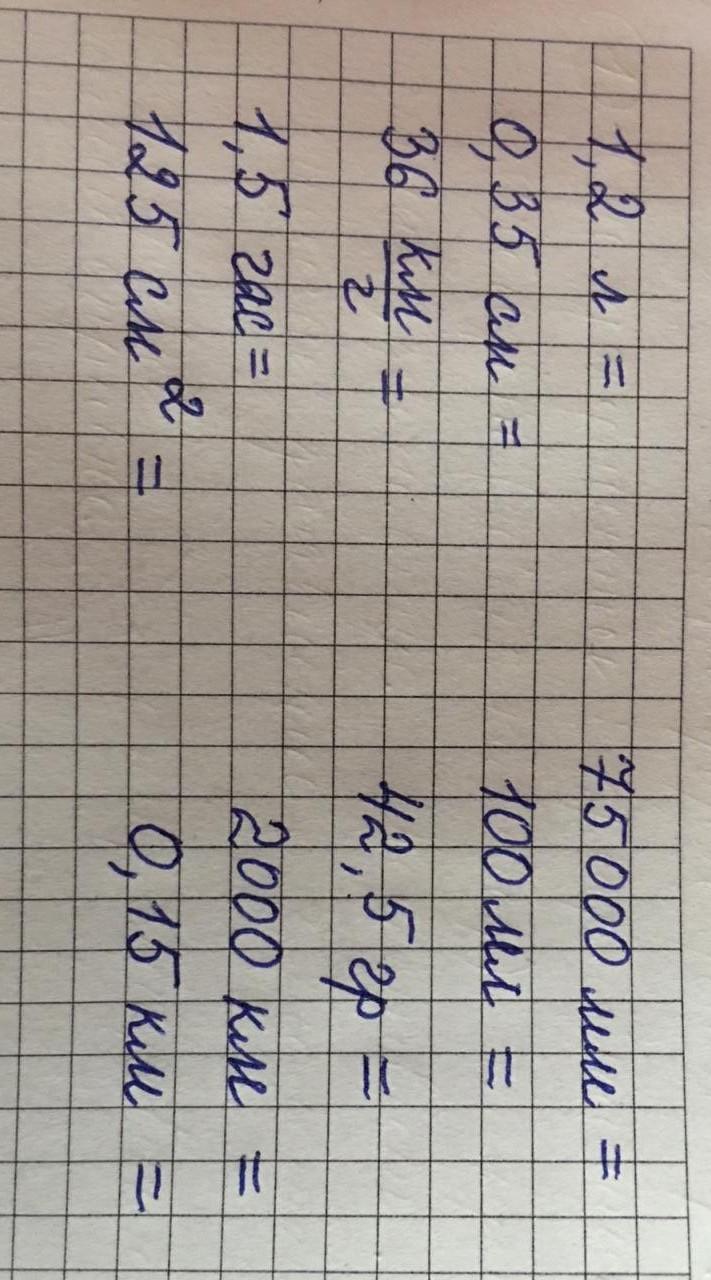 1,2 л = 75000 мм =
0,35 см = 100 мл =
36 км/ч = 42,5 гр =
1,5 час = 2000 км =
125 см² = 0,15 км =